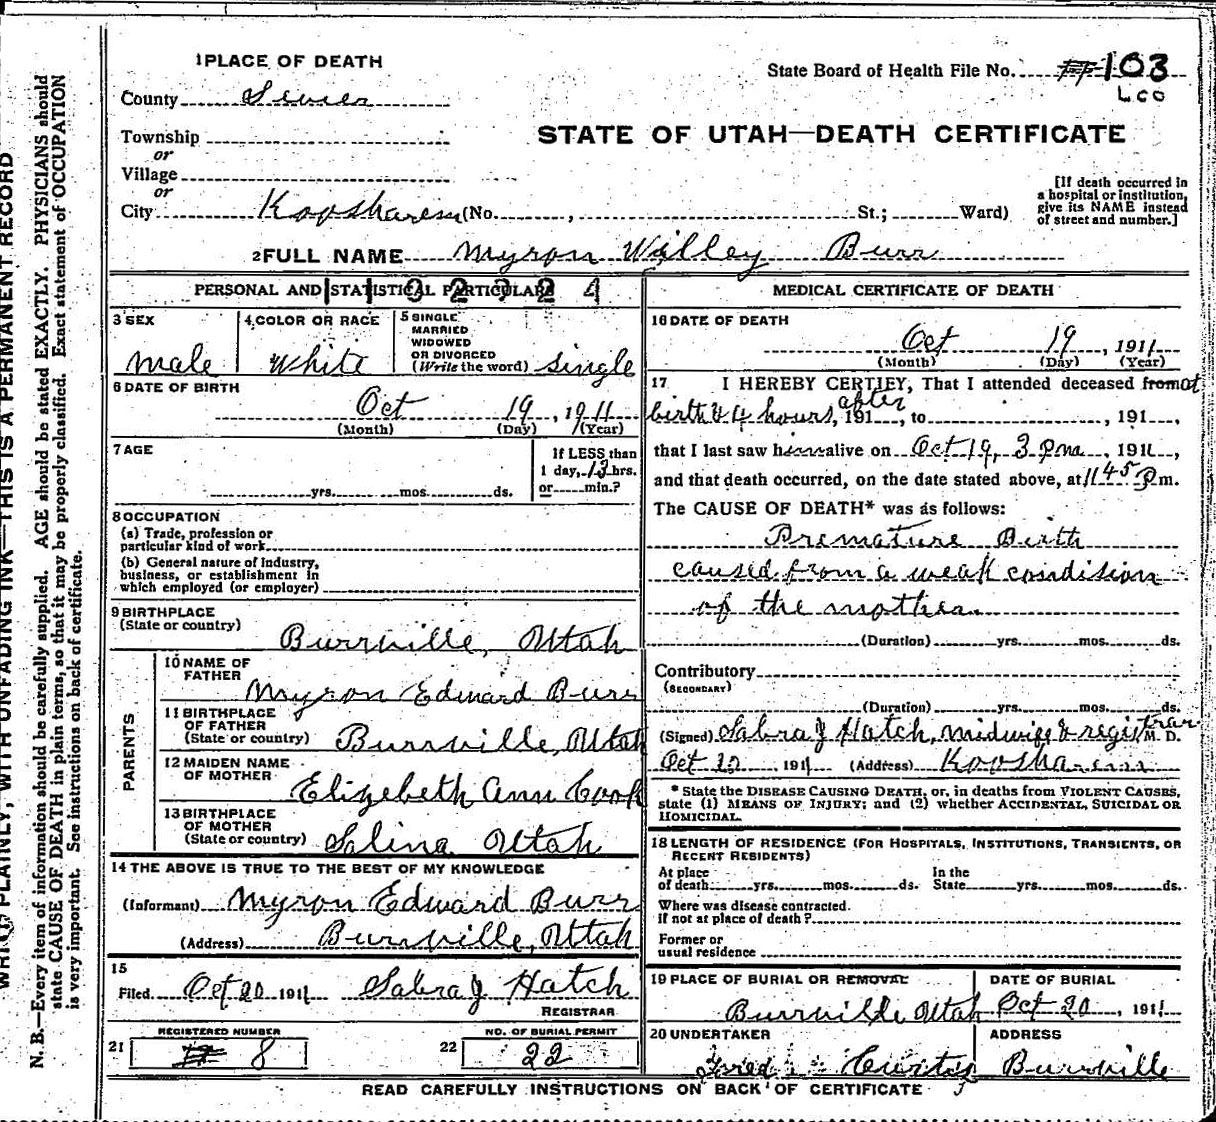 WRITE PLAINLY, WITH UNFADING INK—THIS IS A PERMANENT RECORD
N. B.—Every item of information should be carefully supplied. AGE should be stated EXACTLY. PHYSICIANS should
state CAUSE OF DEATH in plain terms, so that it may be properly classified. Exact statement of OCCUPATION
is very important. See instructions on back of certificate.
1 PLACE OF DEATH
State Board of Health File No. 103
LCO
County Sevier
STATE OF UTAH—DEATH CERTIFICATE
Township
or
Village
or
City Koosharem (No. , St.; Ward)
[If death occurred in
a hospital or institution,
give its NAME instead
of street and number.]
2 FULL NAME Myron Willey Burr
PERSONAL AND STATISTICAL PARTICULARS
3 SEX
male
4 COLOR OR RACE
White
5 SINGLE
MARRIED
WIDOWED
OR DIVORCED
(Write the word) single
6 DATE OF BIRTH
Oct 19, 1911
(Month) (Day) (Year)
7 AGE
yrs. mos. ds.
If LESS than
1 day, 13 hrs.
or min.?
8 OCCUPATION
(a) Trade, profession or
particular kind of work
(b) General nature of Industry,
business, or establishment in
which employed (or employer)
9 BIRTHPLACE
(State or country)
Burrville, Utah
PARENTS
10 NAME OF
FATHER
Myron Edward Burr
11 BIRTHPLACE
OF FATHER
(State or country) Burrville, Utah
12 MAIDEN NAME
OF MOTHER
Elizebeth Ann Cook
13 BIRTHPLACE
OF MOTHER
(State or country) Salina Utah
14 THE ABOVE IS TRUE TO THE BEST OF MY KNOWLEDGE
(Informant) Myron Edward Burr
(Address) Burrville, Utah
15
Filed Oct 20 1911 Sabra J Hatch
REGISTRAR
21 REGISTERED NUMBER
8
22 NO. OF BURIAL PERMIT
22
MEDICAL CERTIFICATE OF DEATH
16 DATE OF DEATH
Oct 19, 1911
(Month) (Day) (Year)
17 I HEREBY CERTIFY, That I attended deceased from at
birth & 4 hours, after 191 , to , 191 ,
that I last saw him alive on Oct 19, 3 pm , 1911 ,
and that death occurred, on the date stated above, at 11 45 P m.
The CAUSE OF DEATH* was as follows:
Premature Birth
caused from a weak condision
of the mother.
(Duration) yrs. mos. ds.
Contributory
(SECONDARY)
(Duration) yrs. mos. ds.
(Signed) Sabra J Hatch, midwife & registrar M. D.
Oct 20 , 1911 (Address) Koosharem
* State the DISEASE CAUSING DEATH, or, in deaths from VIOLENT CAUSES,
state (1) MEANS OF INJURY; and (2) whether ACCIDENTAL, SUICIDAL OR
HOMICIDAL.
18 LENGTH OF RESIDENCE (FOR HOSPITALS, INSTITUTIONS, TRANSIENTS, OR
RECENT RESIDENTS)
At place
of death yrs. mos. ds.
In the
State yrs. mos. ds.
Where was disease contracted.
if not at place of death?
Former or
usual residence
19 PLACE OF BURIAL OR REMOVAL
Burrville Utah
DATE OF BURIAL
Oct 20 , 1911
20 UNDERTAKER
Fred Curtis
ADDRESS
Burrville
READ CAREFULLY INSTRUCTIONS ON BACK OF CERTIFICATE